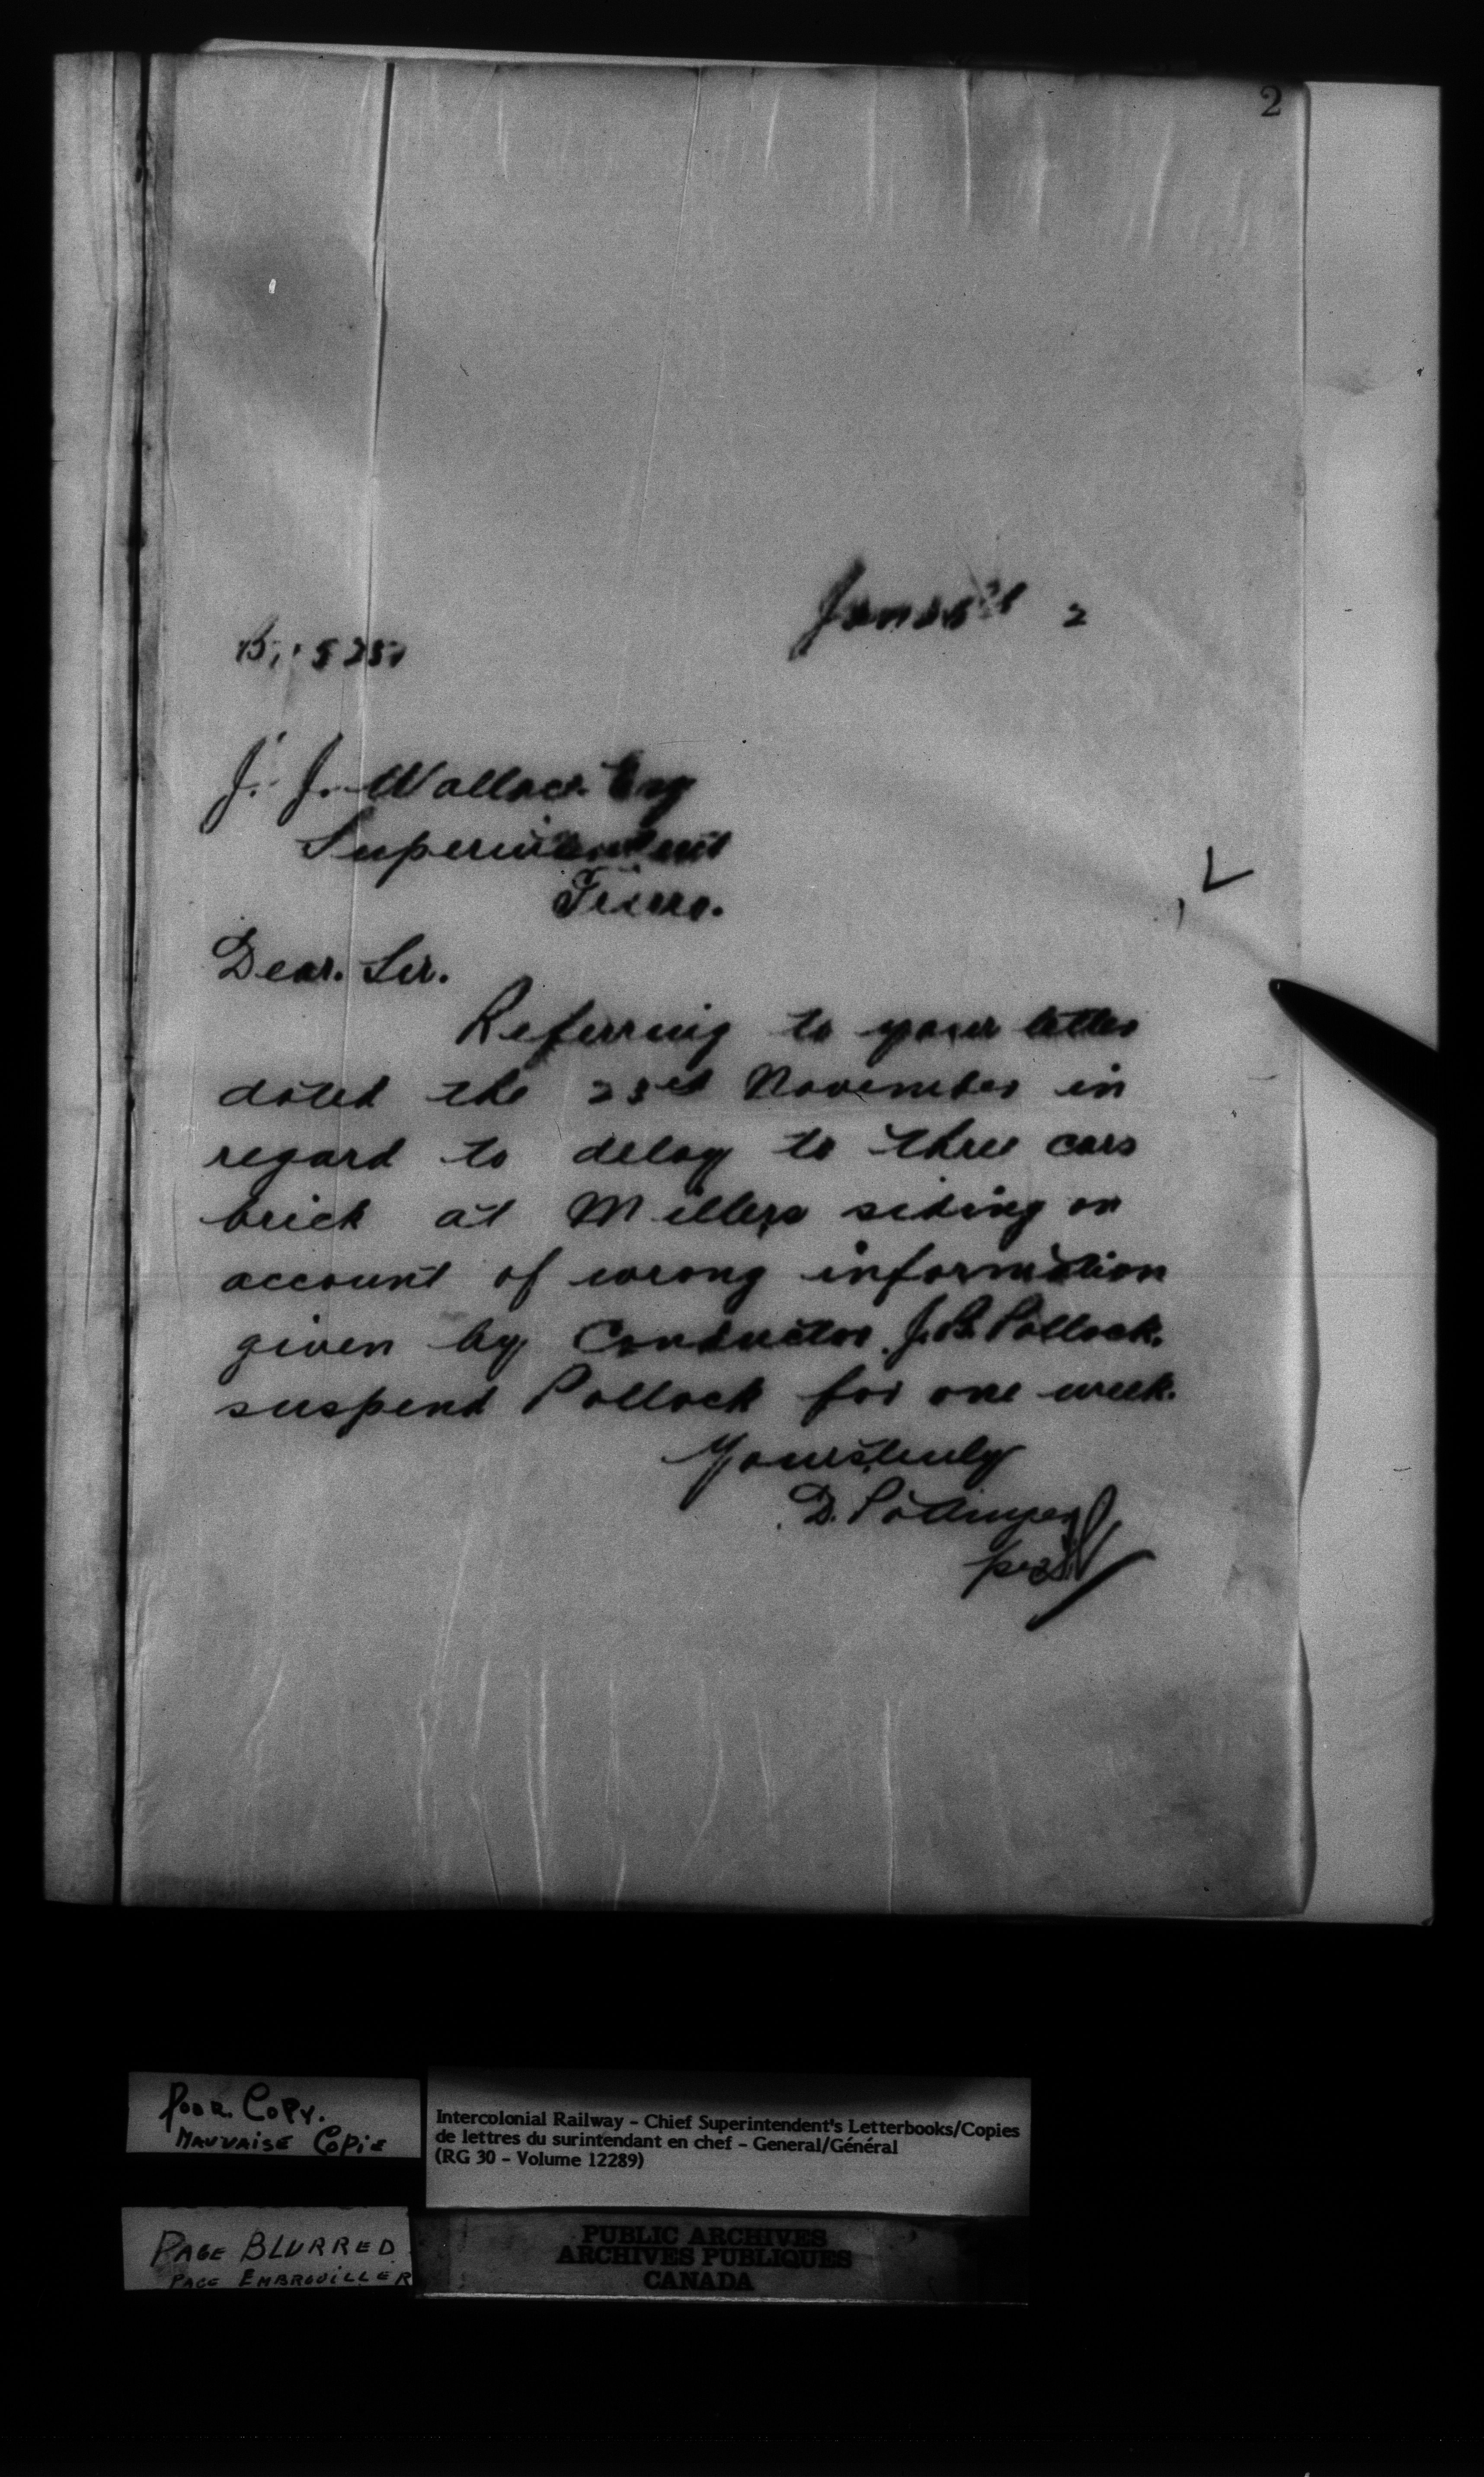 2
2
J. J. Wallace Esq
Superintendent
Truro.
Dear. Sir.
Referring to your letter
dated the 23rd November in
regard to delay to three cars
brick at Millers siding on
account of wrong information
given by Conductor J. B. Pollock.
suspend Pollock for one week.
Yours truly
D. Pottinger
per
Poor Copy.
Mauvaise Copie
Intercolonial Railway – Chief Superintendent's Letterbooks/Copies
de lettres du surintendant en chef – General/Général
(RG 30 – Volume 12289)
Page Blurred
Page Embrouiller
PUBLIC ARCHIVES
ARCHIVES PUBLIQUES
CANADA